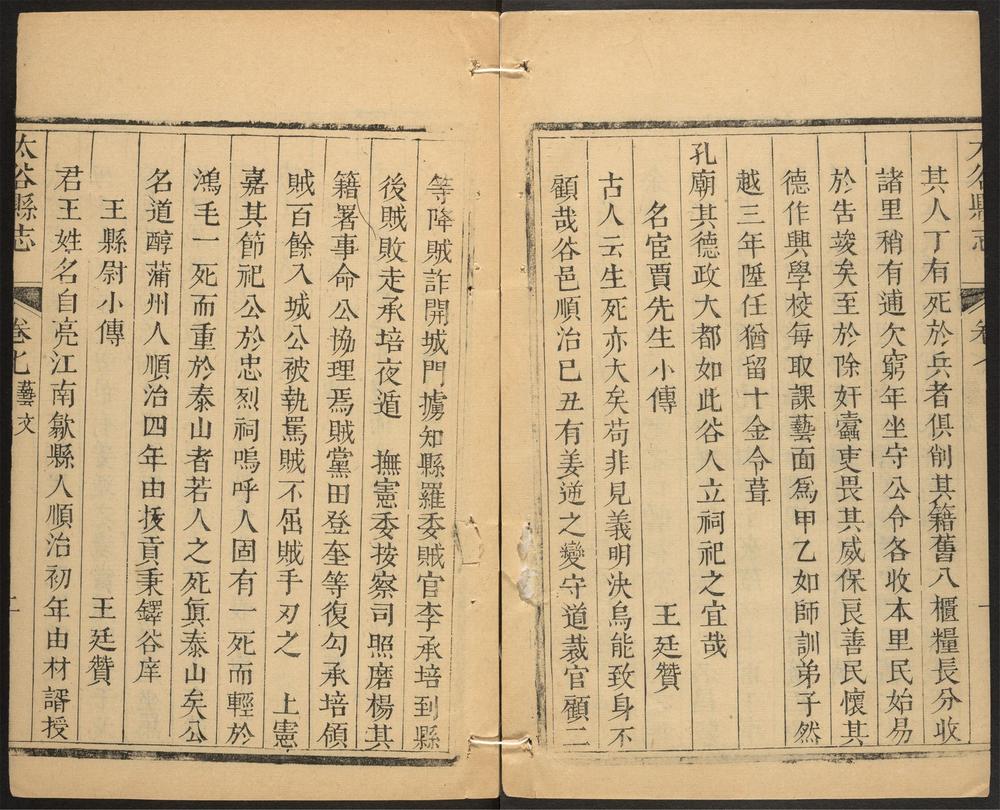 太谷縣志 卷七
其人丁有死於兵者俱削其籍舊八櫃糧長分收
諸里稍有逋欠窮年坐守公令各收本里民始易
於告竣矣至於除奸蠧吏畏其威保良善民懷其
德作興學校每取課藝面爲甲乙如師訓弟子然
越三年陞任猶留十金令葺
孔廟其德政大都如此谷人立祠祀之宜哉
名宦賈先生小傳 王廷贊
古人云生死亦大矣苟非見義明決烏能致身不
顧哉谷邑順治巳丑有姜逆之變守道裁官顧二
等降賊詐開城門擄知縣羅委賊官李承培到縣
後賊敗走承培夜遁 撫憲委按察司照磨楊其
籍署事命公協理焉賊黨田登奎等復勾承培領
賊百餘入城公被執罵賊不屈賊手刃之 上憲
嘉其節祀公於忠烈祠嗚呼人固有一死而輕於
鴻毛一死而重於泰山者若人之死眞泰山矣公
名道醇蒲州人順治四年由拔貢秉鐸谷庠
王縣尉小傳 王廷贊
君王姓名自亮江南歙縣人順治初年由材諝授
太谷縣志 卷七 藝文 二